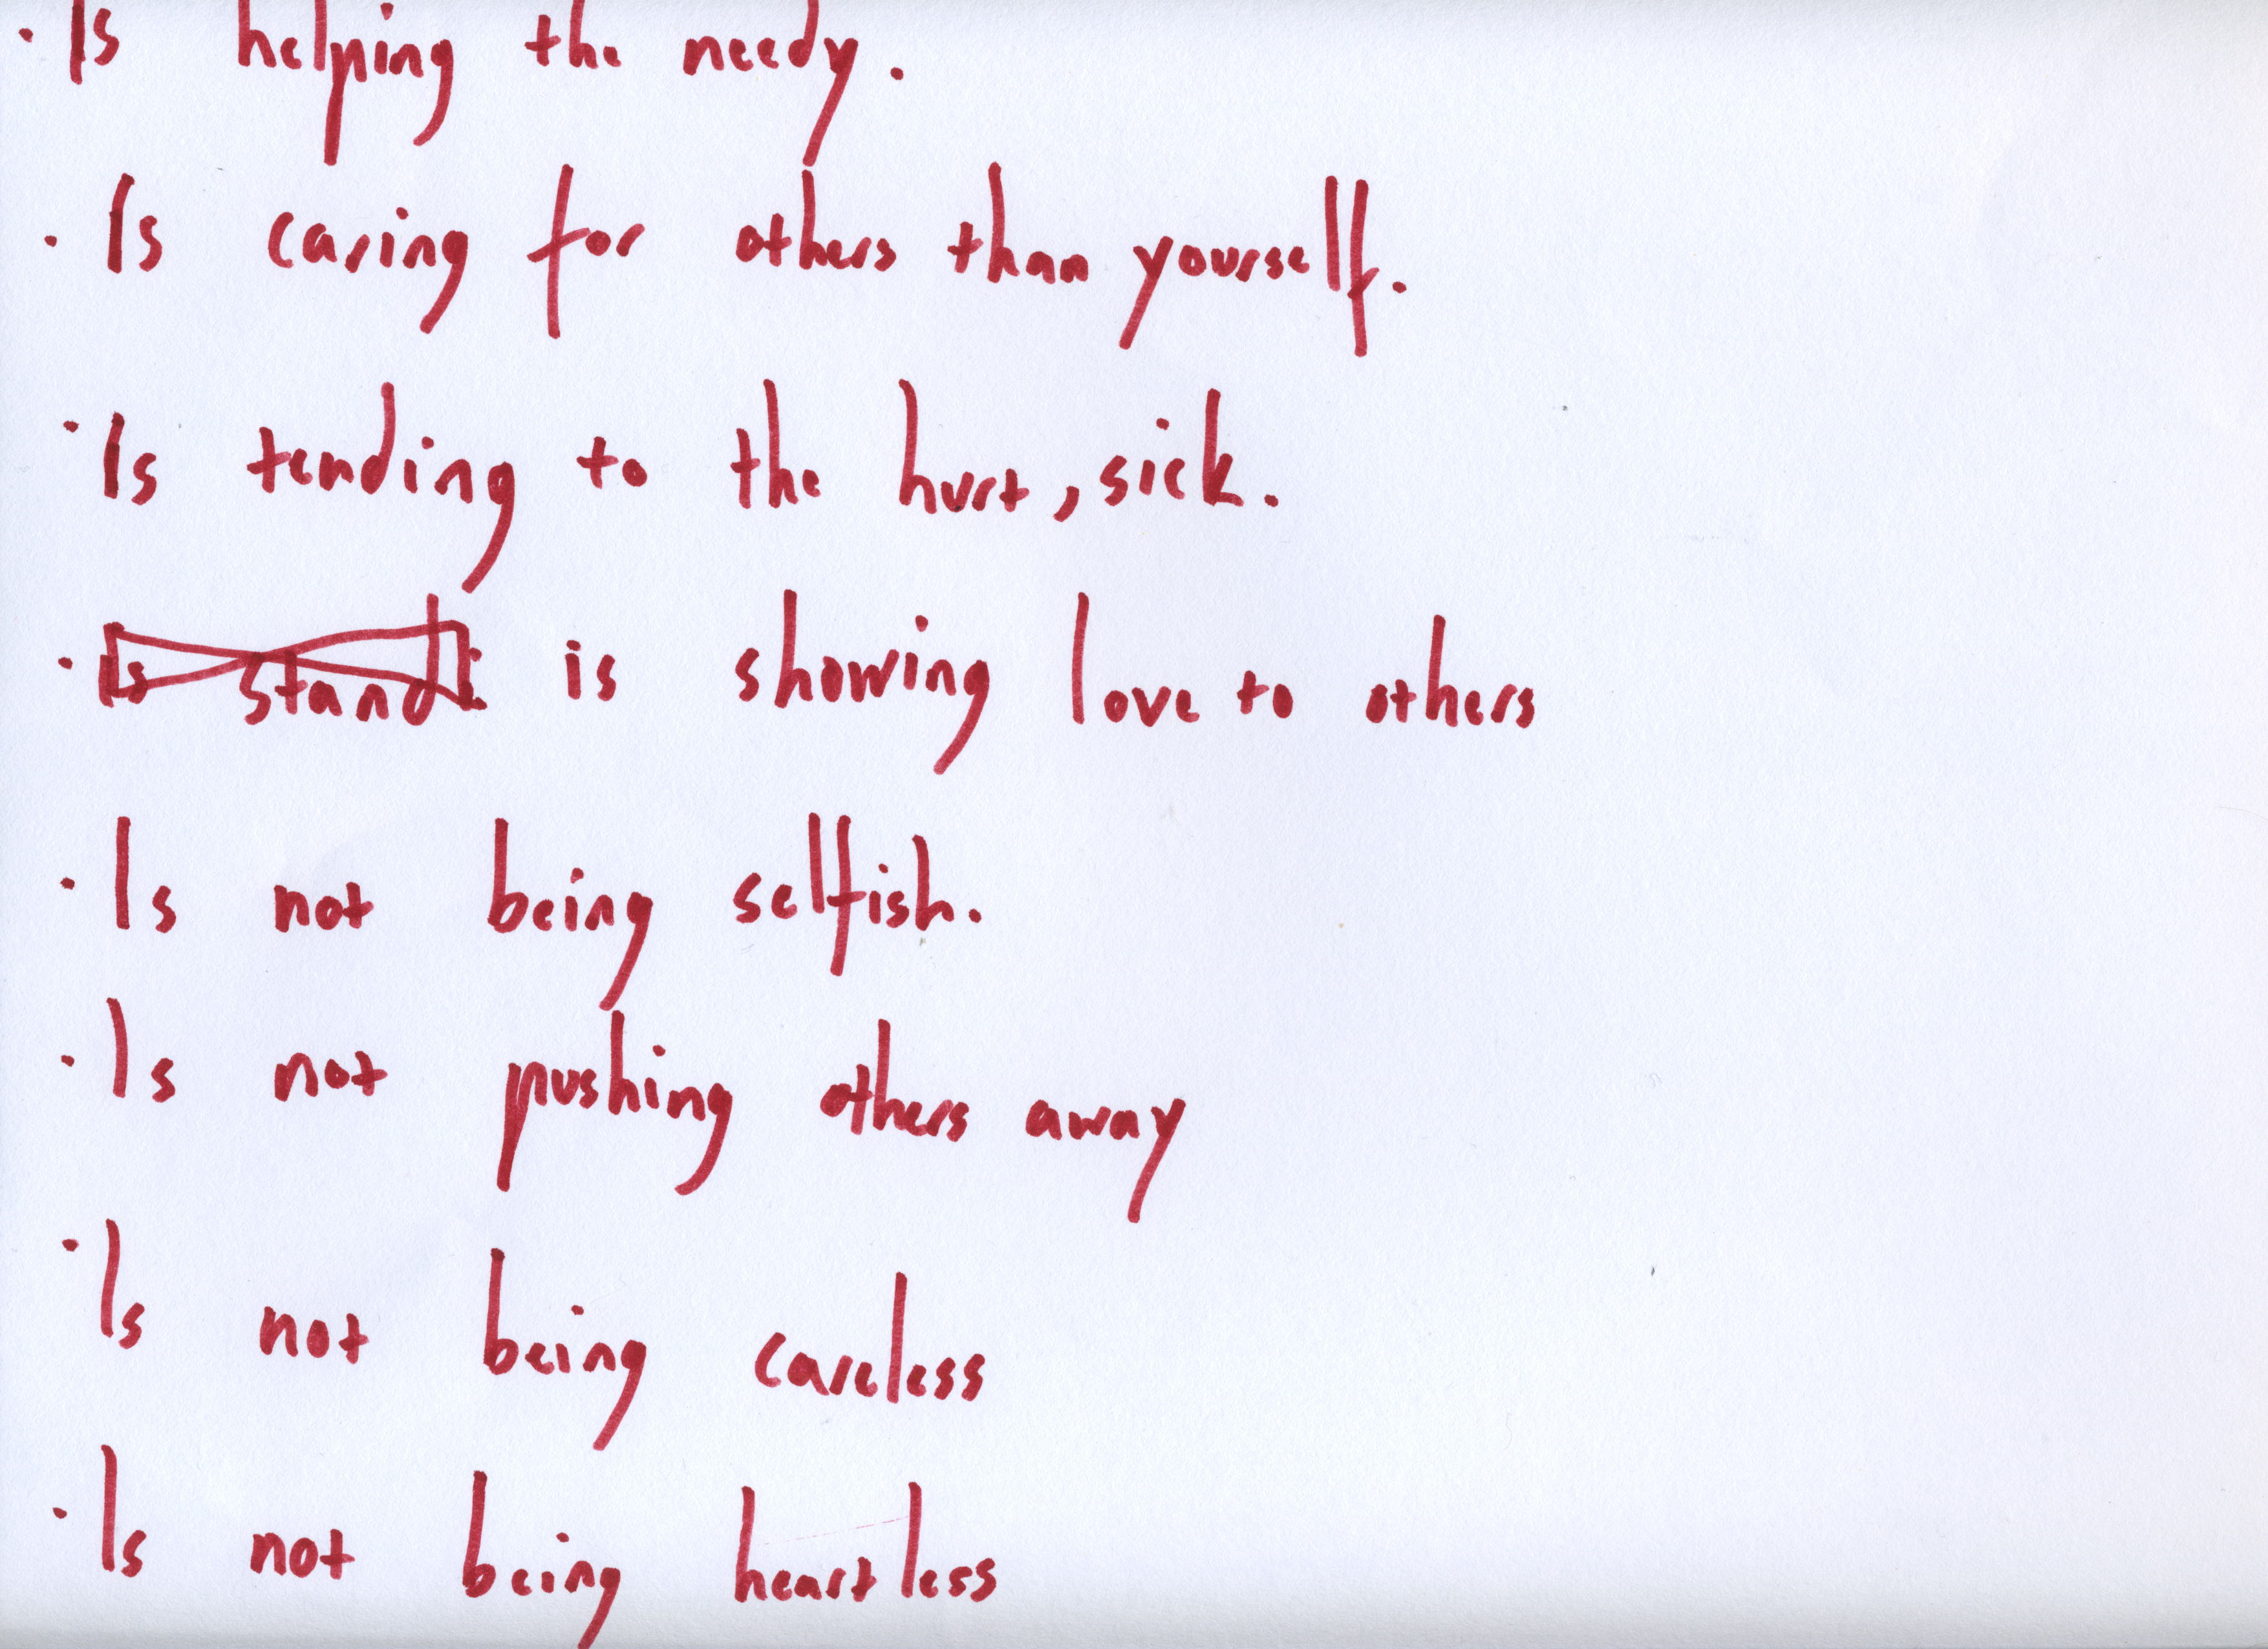 · Is helping the needy.
· Is caring for others than yourself.
· Is tending to the hurt, sick.
· Is stand is showing love to others
· Is not being selfish.
· Is not pushing others away
· Is not being careless
· Is not being heartless